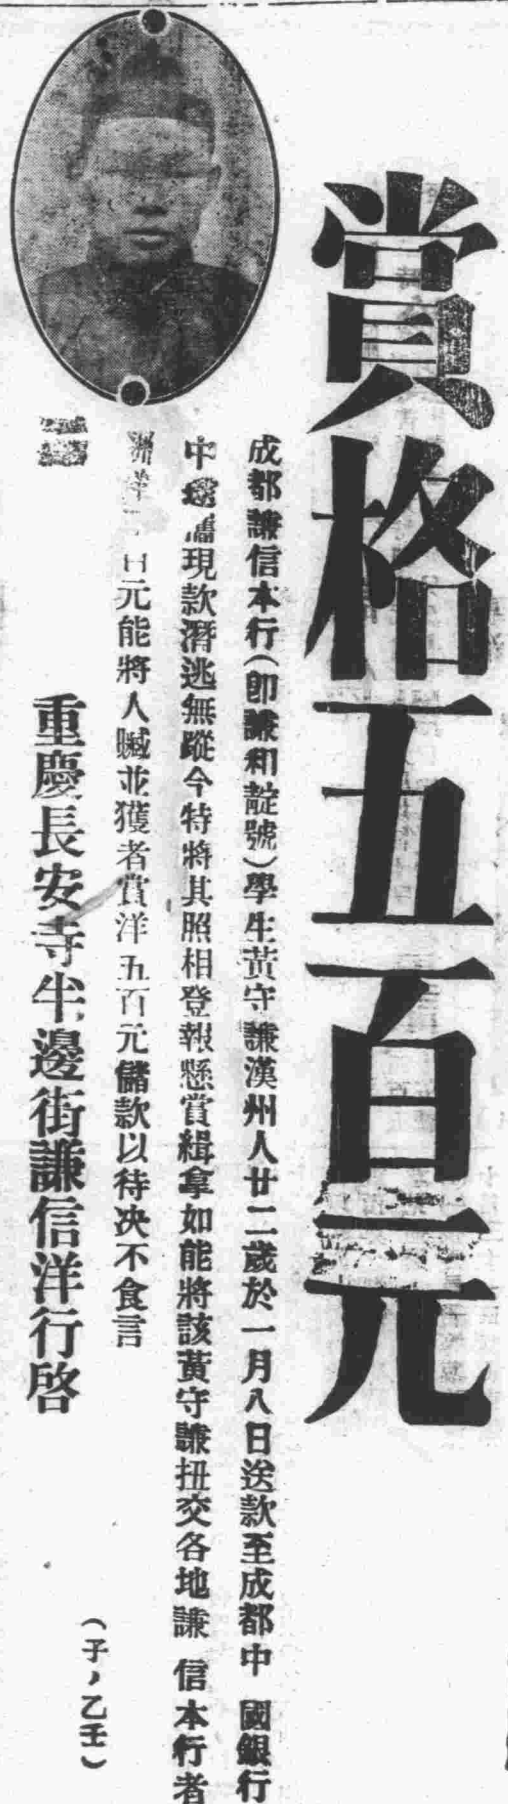 賞格五百元
成都謙信本行(卽謙和靛號)學生黃守謙漢州人廿二歲於一月八日送款至成都中國銀行
中途攜現款潛逃無蹤今特將其照相登報懸賞緝拿如能將該黃守謙扭交各地謙信本行者
洋 百元能將人贓並獲者賞洋五百元儲款以待决不食言
重慶長安寺半邊街謙信洋行啓
(子,乙壬)